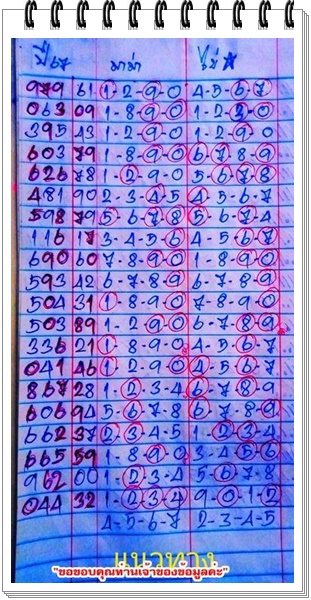 ปี67 มาล่า ไม่
979 61 1-2-9-0 4-5-6-7
063 09 1-8-9-0 1-2-3-0
395 43 1-2-9-0 1-2-9-0
603 79 1-8-9-0 6-7-8-9
626 78 1-2-9-0 5-6-7-8
481 90 2-3-4-5 4-5-6-7
598 79 5-6-7-8 5-6-7-4
116 17 3-4-5-6 4-5-6-7
690 60 7-8-9-0 1-8-9-0
593 42 6-7-8-9 6-7-8-9
504 31 1-8-9-0 7-8-9-0
503 89 1-2-9-0 6-7-8-9
336 21 1-8-9-0 4-5-6-7
041 46 1-2-9-0 4-5-6-7
867 28 1-2-3-4 6-7-8-9
606 94 5-6-7-8 6-7-8-9
662 37 2-3-4-5 1-2-3-4
665 59 1-8-9-0 3-4-5-6
962 00 1-2-3-4 5-6-7-8
044 32 1-2-3-4 9-0-1-2
4-5-6-7 2-3-4-5
แนวทาง
"ขอขอบคุณท่านเจ้าของข้อมูลค่ะ"